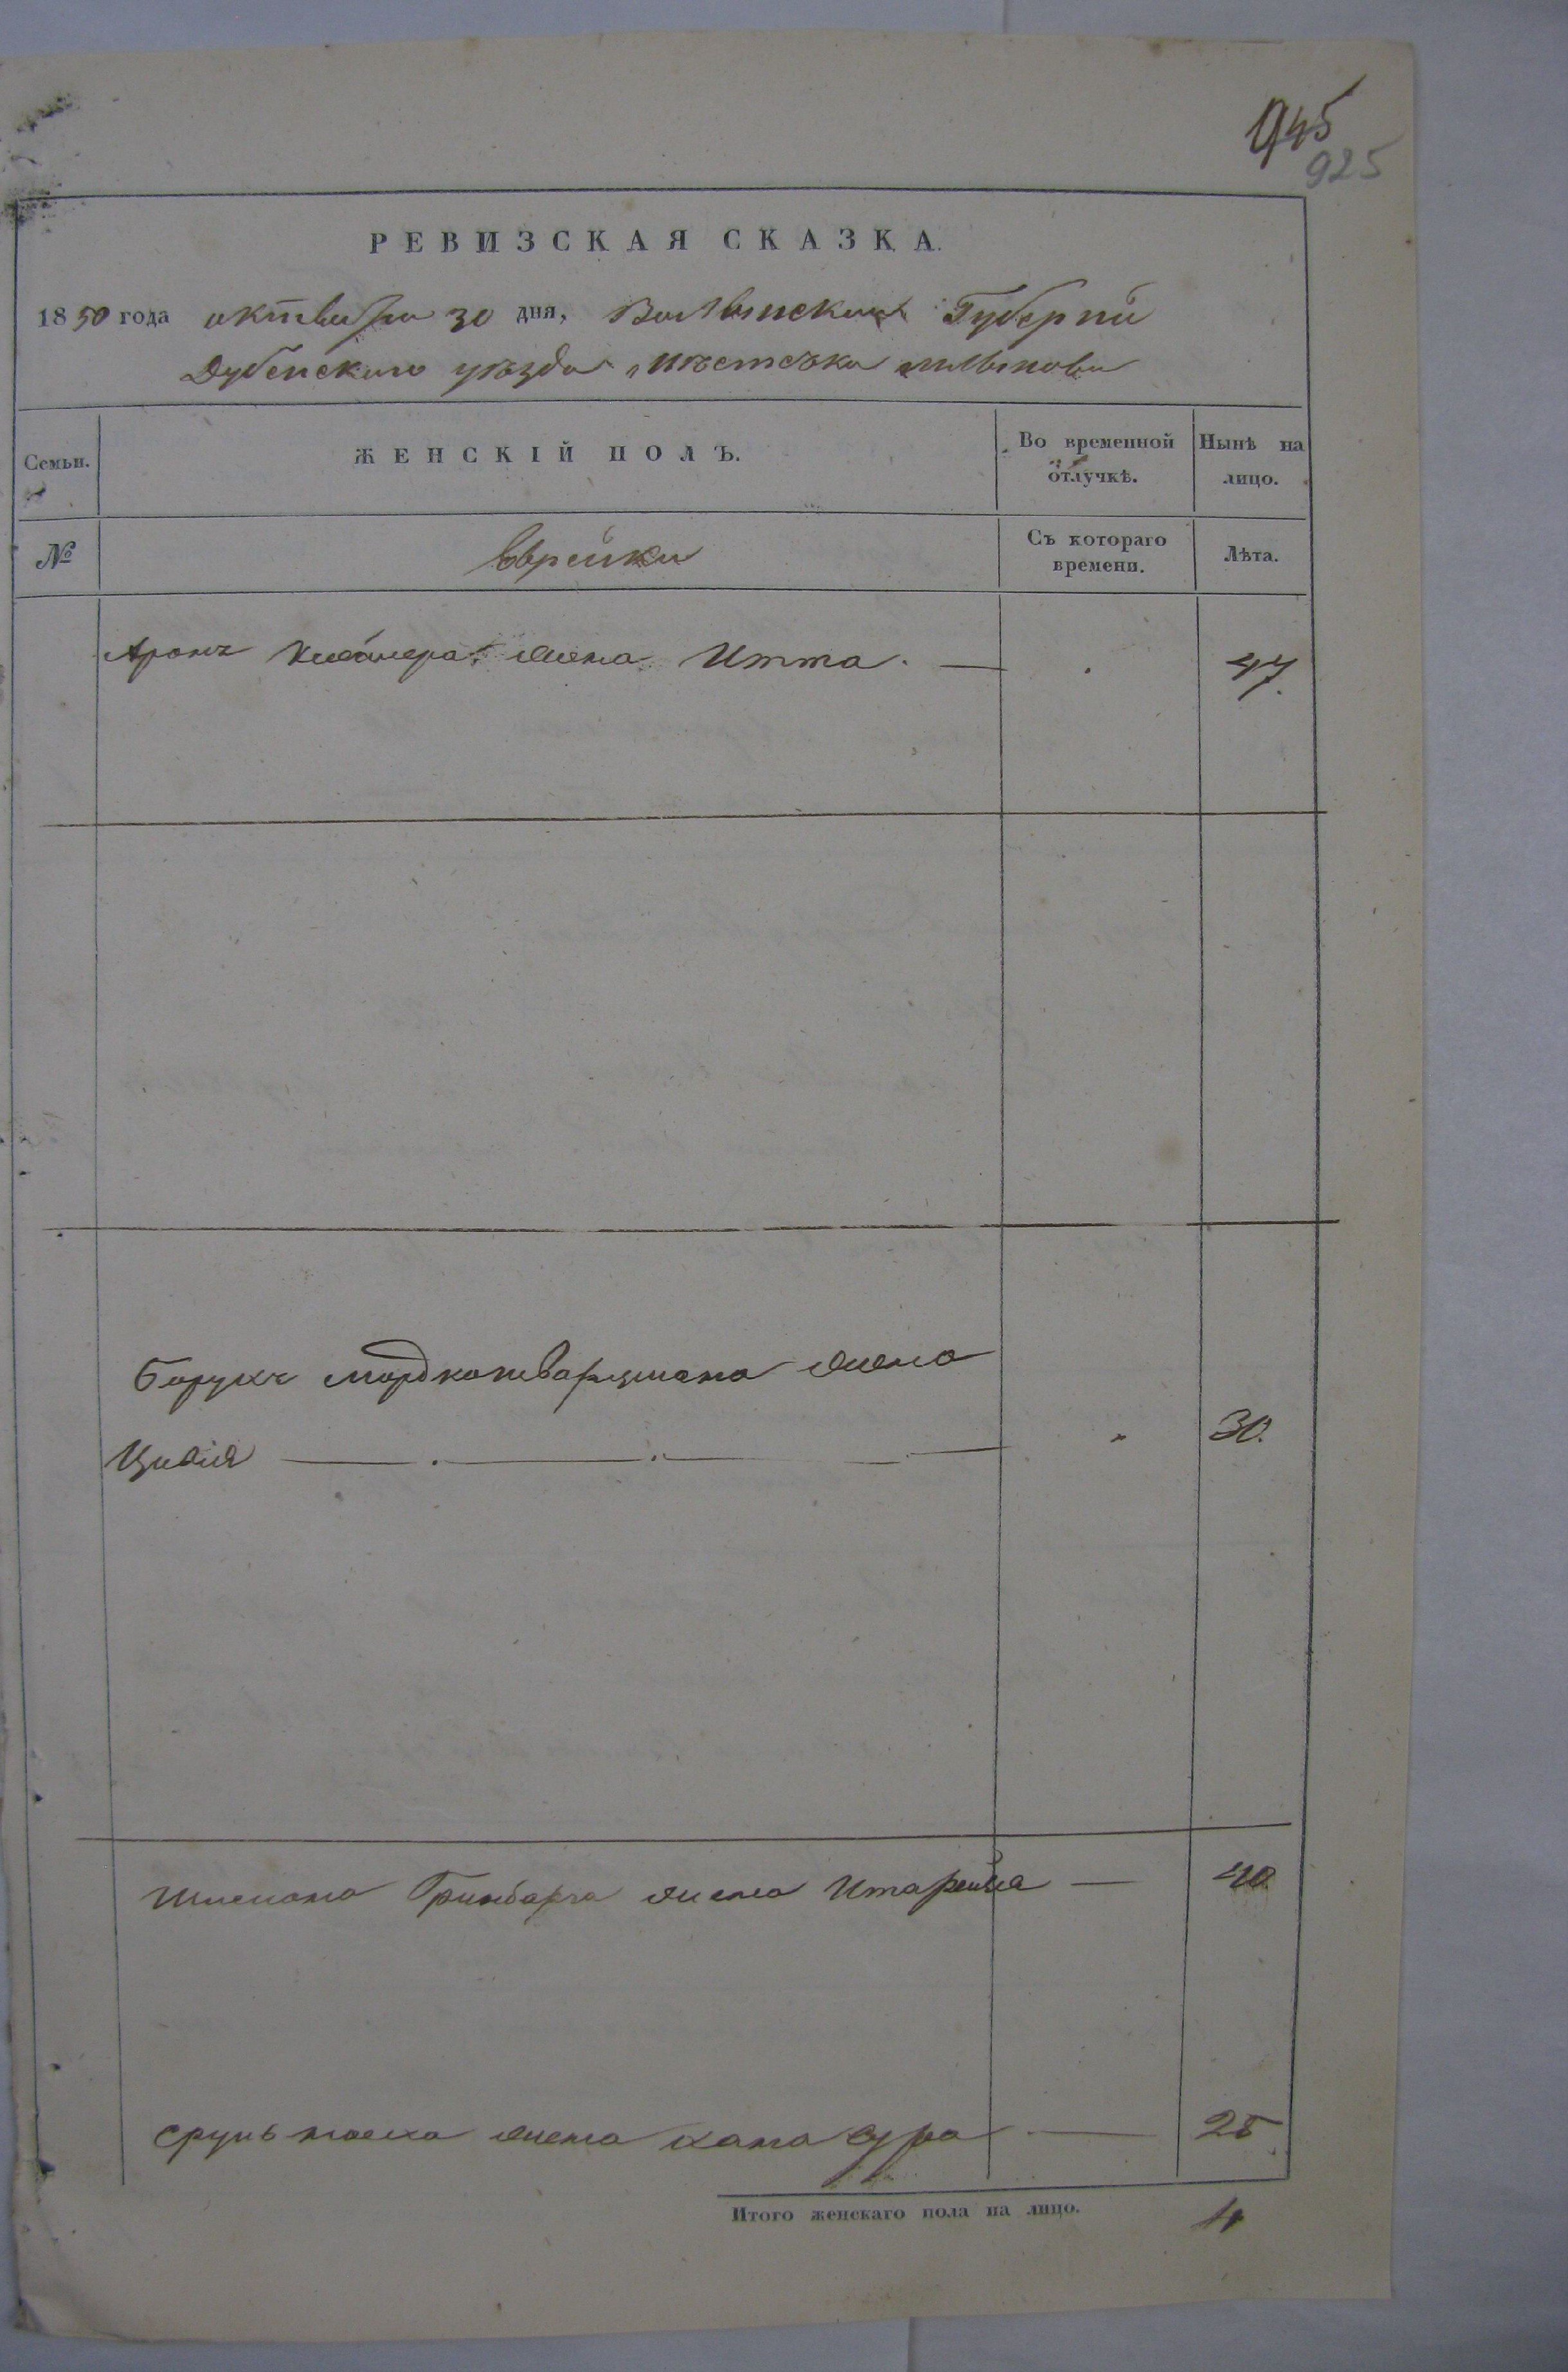 945
925
РЕВИЗСКАЯ СКАЗКА.
1850 года октября 30 дня, Волынской Губерніи
Дубенского уѣзда, мѣстечка Млынова
Семьи.
ЖЕНСКІЙ ПОЛЪ.
Во временной отлучкѣ.
Нынѣ на лицо.
№
Еврейки
Съ котораго времени.
Лѣта.
Аронъ жена Итта. — 47.
Борухъ жена
Цивія — 30.
Гринбарга жена Ита — 40
Сруль жена хана сура — 25
Итого женскаго пола на лицо. 4